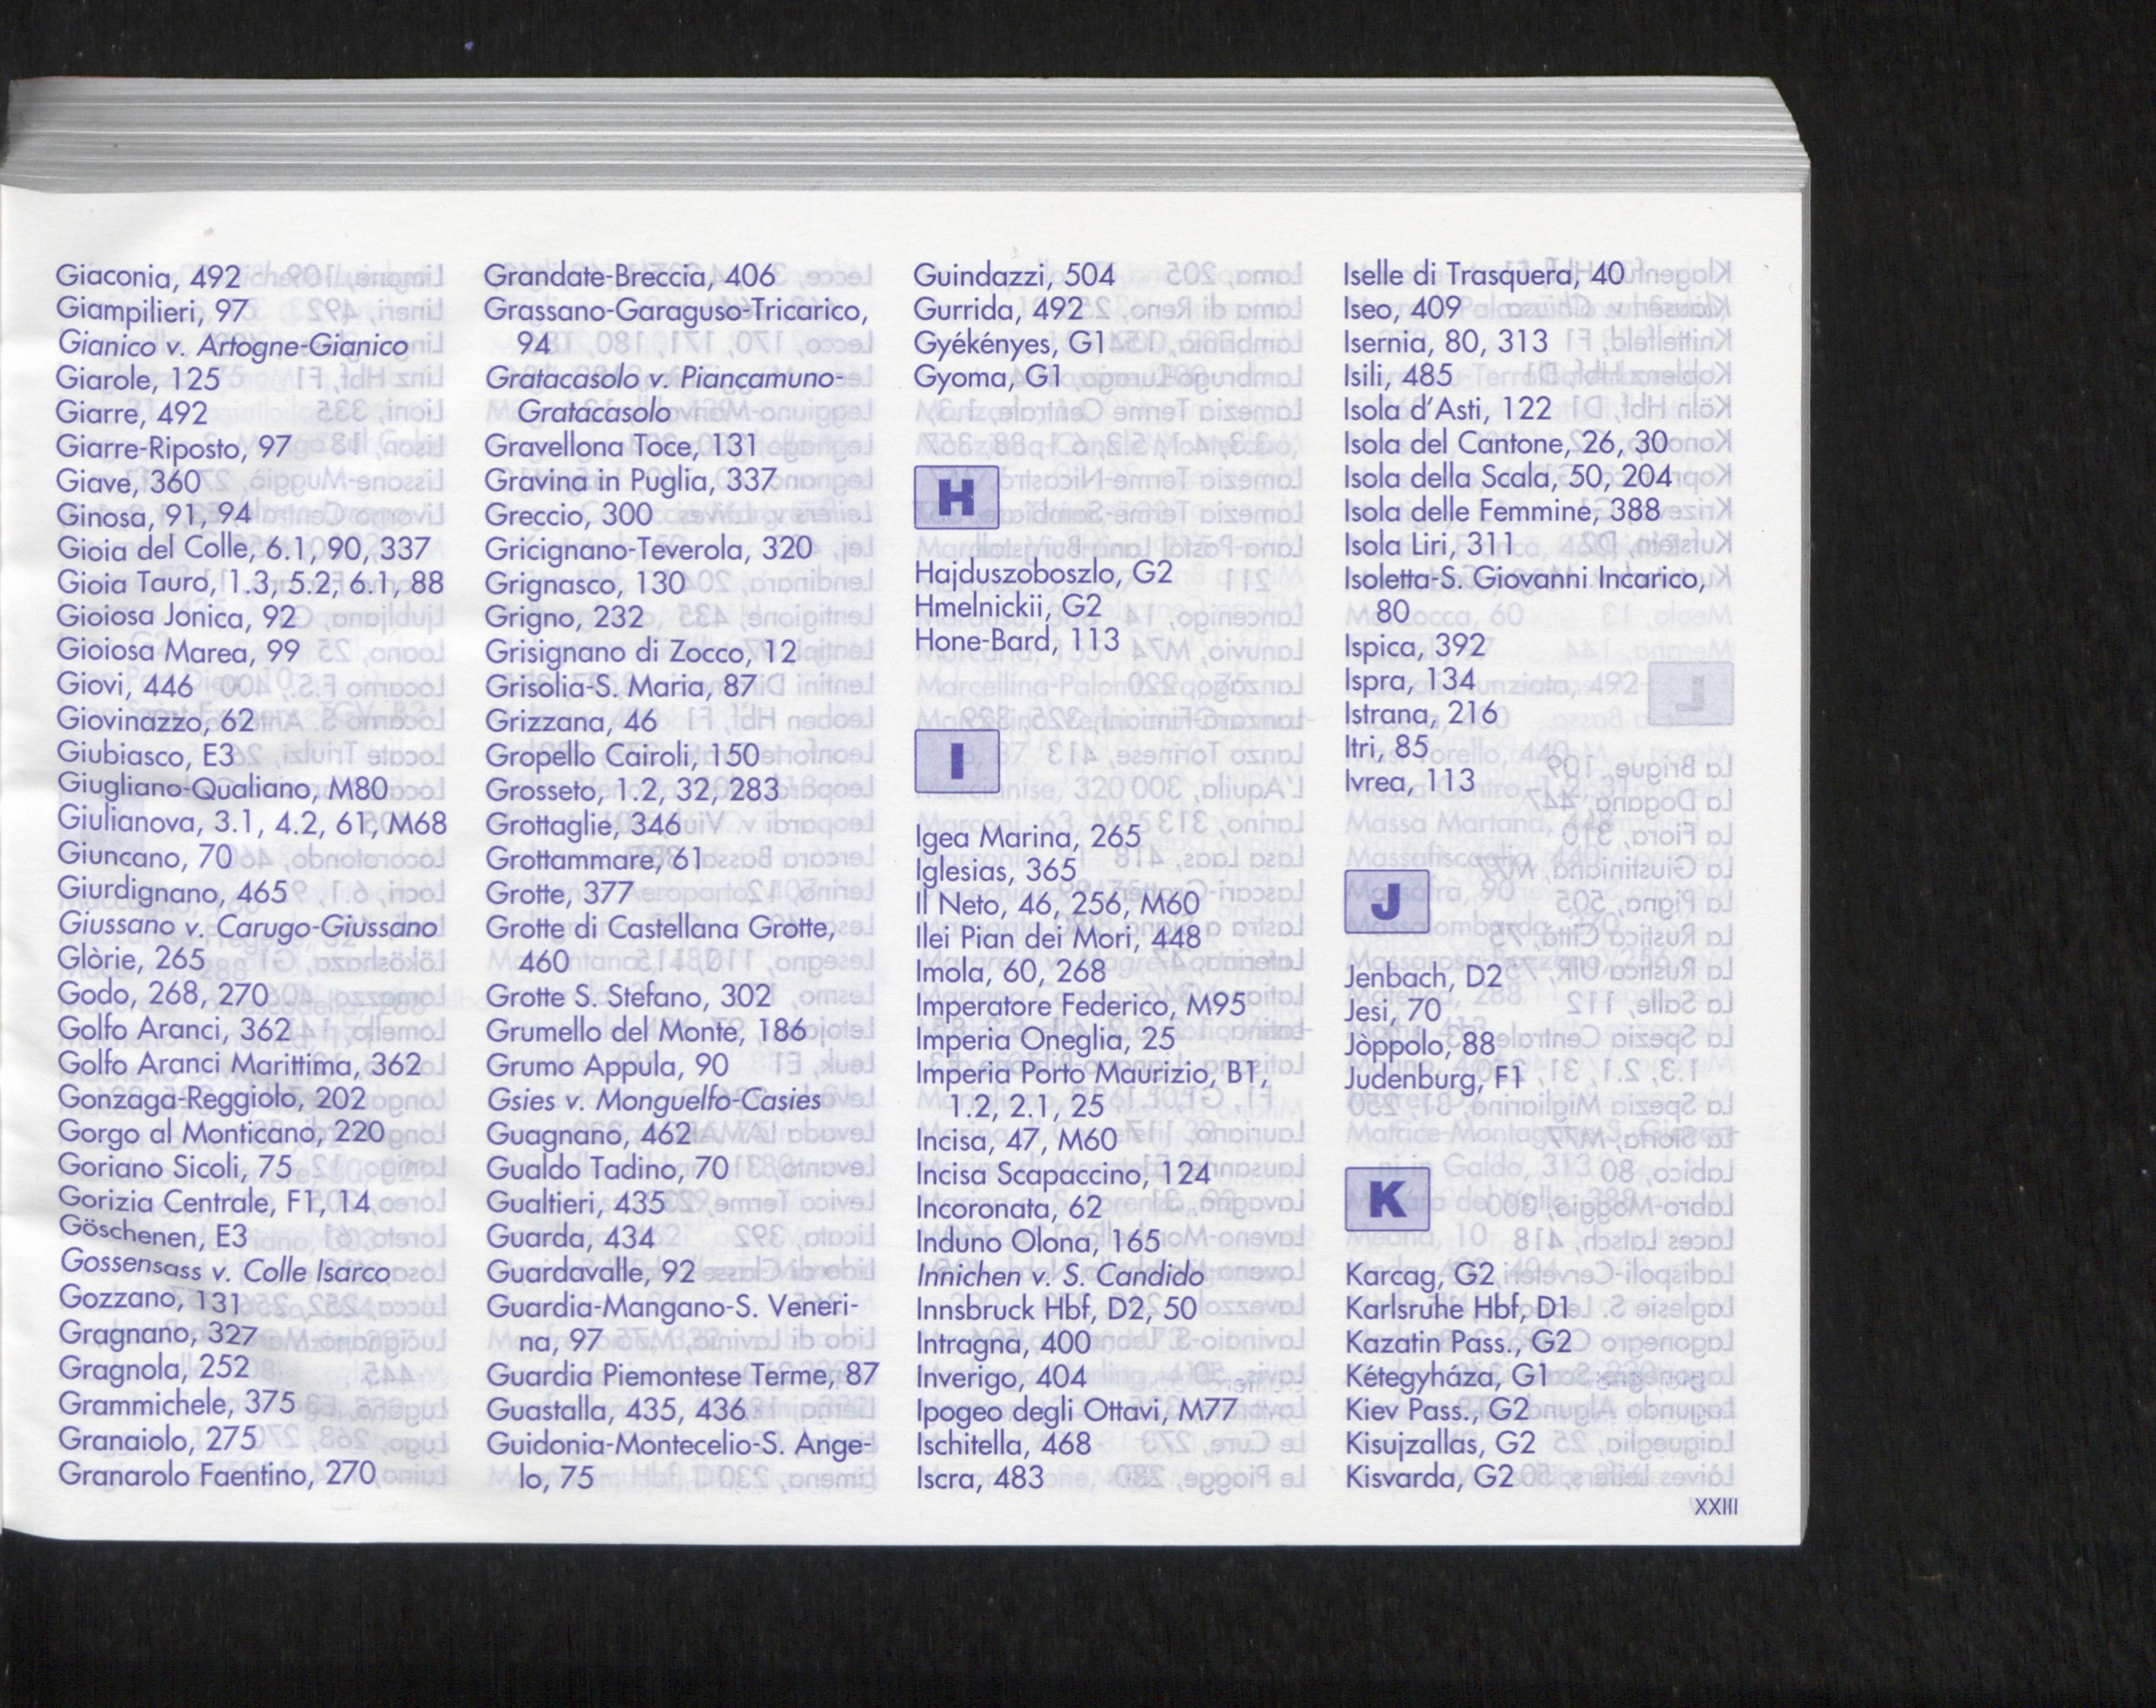 Giaconia, 492
Giampilieri, 97
Gianico v. Artogne-Gianico
Giarole, 125
Giarre, 492
Giarre-Riposto, 97
Giave, 360
Ginosa, 91, 94
Gioia del Colle, 6.1, 90, 337
Gioia Tauro, 1.3, 5.2, 6.1, 88
Gioiosa Jonica, 92
Gioiosa Marea, 99
Giovi, 446
Giovinazzo, 62
Giubiasco, E3
Giugliano-Qualiano, M80
Giulianova, 3.1, 4.2, 61, M68
Giuncano, 70
Giurdignano, 465
Giussano v. Carugo-Giussano
Glòrie, 265
Godo, 268, 270
Golfo Aranci, 362
Golfo Aranci Marittima, 362
Gonzaga-Reggiolo, 202
Gorgo al Monticano, 220
Goriano Sicoli, 75
Gorizia Centrale, F1, 14
Göschenen, E3
Gossensass v. Colle Isarco
Gozzano, 131
Gragnano, 327
Gragnola, 252
Grammichele, 375
Granaiolo, 275
Granarolo Faentino, 270
Grandate-Breccia, 406
Grassano-Garaguso-Tricarico,
94
Gratacasolo v. Piancamuno-
Gratacasolo
Gravellona Toce, 131
Gravina in Puglia, 337
Greccio, 300
Gricignano-Teverola, 320
Grignasco, 130
Grigno, 232
Grisignano di Zocco, 12
Grisolia-S. Maria, 87
Grizzana, 46
Gropello Cairoli, 150
Grosseto, 1.2, 32, 283
Grottaglie, 346
Grottammare, 61
Grotte, 377
Grotte di Castellana Grotte,
460
Grotte S. Stefano, 302
Grumello del Monte, 186
Grumo Appula, 90
Gsies v. Monguelfo-Casies
Guagnano, 462
Gualdo Tadino, 70
Gualtieri, 435
Guarda, 434
Guardavalle, 92
Guardia-Mangano-S. Veneri-
na, 97
Guardia Piemontese Terme, 87
Guastalla, 435, 436
Guidonia-Montecelio-S. Ange-
lo, 75
Guindazzi, 504
Gurrida, 492
Gyékényes, G1
Gyoma, G1
H
Hajduszoboszlo, G2
Hmelnickii, G2
Hone-Bard, 113
I
Igea Marina, 265
Iglesias, 365
Il Neto, 46, 256, M60
Ilei Pian dei Mori, 448
Imola, 60, 268
Imperatore Federico, M95
Imperia Oneglia, 25
Imperia Porto Maurizio, B1,
1.2, 2.1, 25
Incisa, 47, M60
Incisa Scapaccino, 124
Incoronata, 62
Induno Olona, 165
Innichen v. S. Candido
Innsbruck Hbf, D2, 50
Intragna, 400
Inverigo, 404
Ipogeo degli Ottavi, M77
Ischitella, 468
Iscra, 483
Iselle di Trasquera, 40
Iseo, 409
Isernia, 80, 313
Isili, 485
Isola d'Asti, 122
Isola del Cantone, 26, 30
Isola della Scala, 50, 204
Isola delle Femmine, 388
Isola Liri, 311
Isoletta-S. Giovanni Incarico,
80
Ispica, 392
Ispra, 134
Istrana, 216
Itri, 85
Ivrea, 113
J
Jenbach, D2
Jesi, 70
Jòppolo, 88
Judenburg, F1
K
Karcag, G2
Karlsruhe Hbf, D1
Kazatin Pass., G2
Kétegyháza, G1
Kiev Pass., G2
Kisujzallas, G2
Kisvarda, G2
XXIII